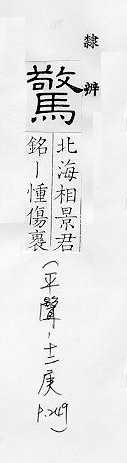 隸辨
驚
北海相景君
銘｜憧傷褱
(平聲、十二庚 P.249)